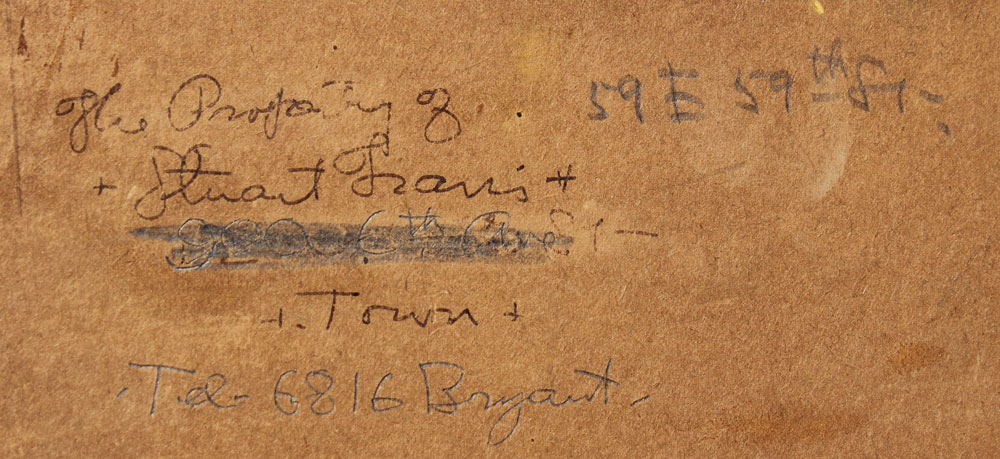 The Property of
59 E 59th St.
+ Stuart Travis +
6th Ave
+. Town +
Tel. 6816 Bryant.